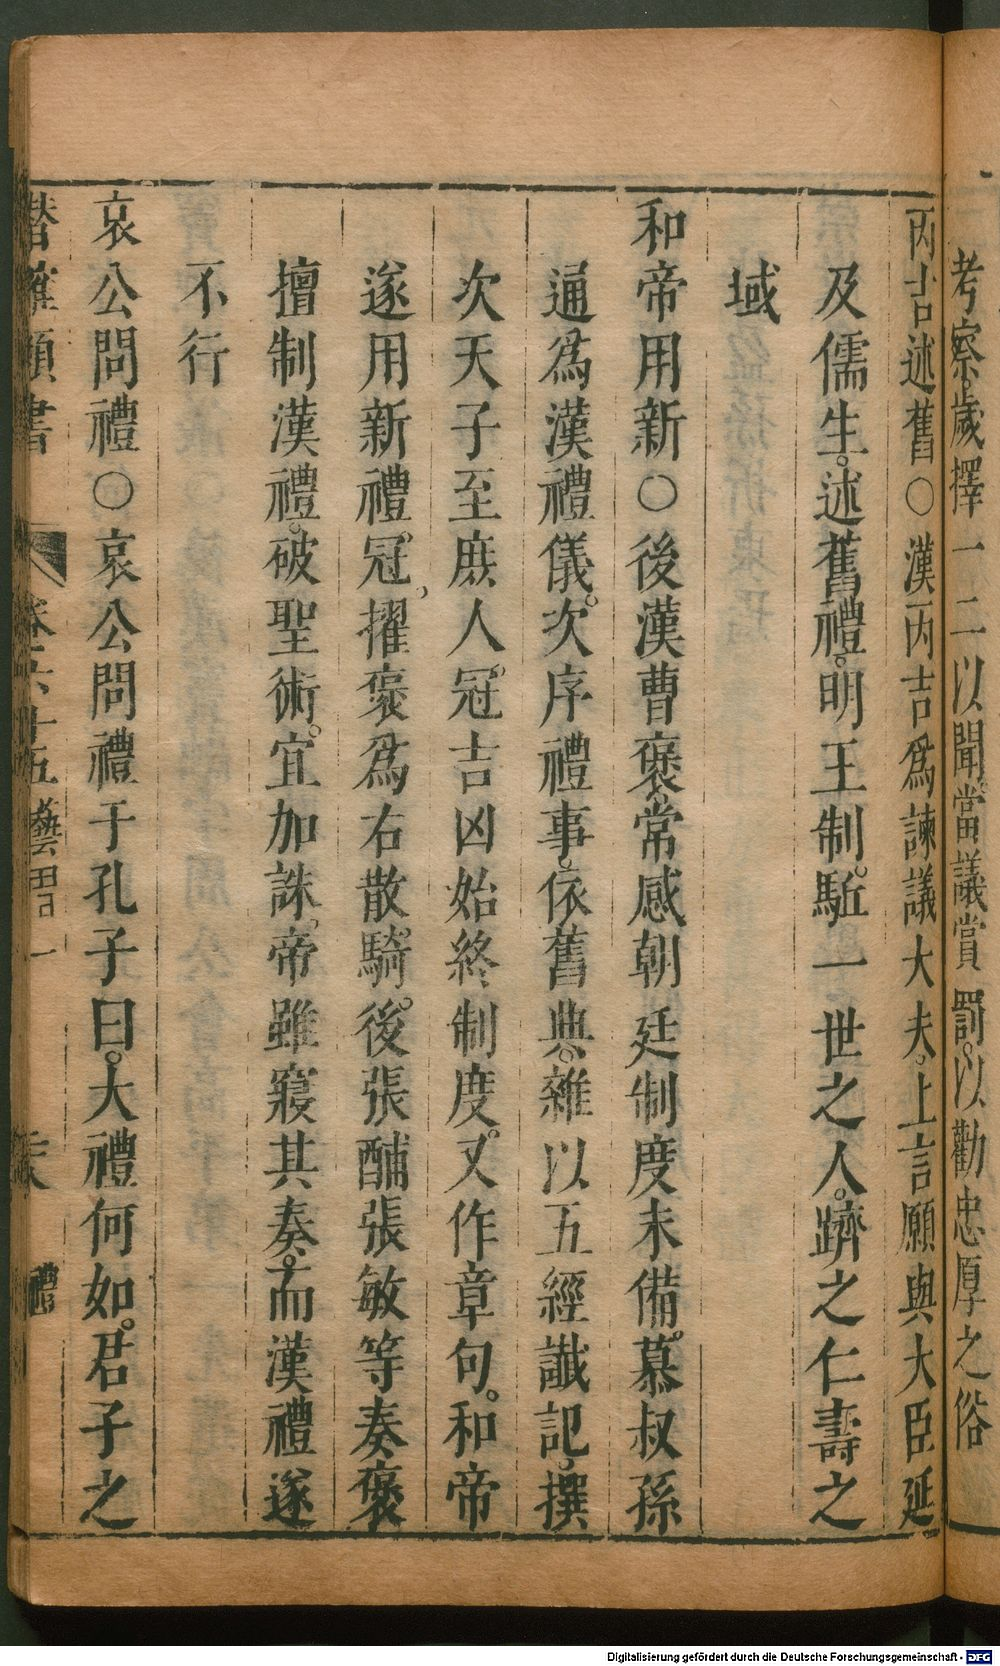 考察。歲擇一二以聞。當議賞罰。以勸忠厚之俗
丙吉述舊○漢丙吉爲諫議大夫。上言願與大臣延
及儒生。述舊禮。明王制。駈一世之人。躋之仁壽之
域
和帝用新○後漢曹褒。常感朝廷制度未備。慕叔孫
通爲漢禮儀。次序禮事。依舊典。雜以五經讖記。撰
次天子至庶人。冠吉凶始終制度。又作章句。和帝
遂用新禮冠。擢褒爲右散騎。後張酺張敏等奏褒
擅制漢禮。破聖術。宜加誅。帝雖寢其奏。而漢禮遂
不行
哀公問禮○哀公問禮于孔子曰。大禮何如。君子之
潛確類書 卷六十五 藝習一 禮
Digitalisierung gefördert durch die Deutsche Forschungsgemeinschaft - DFG